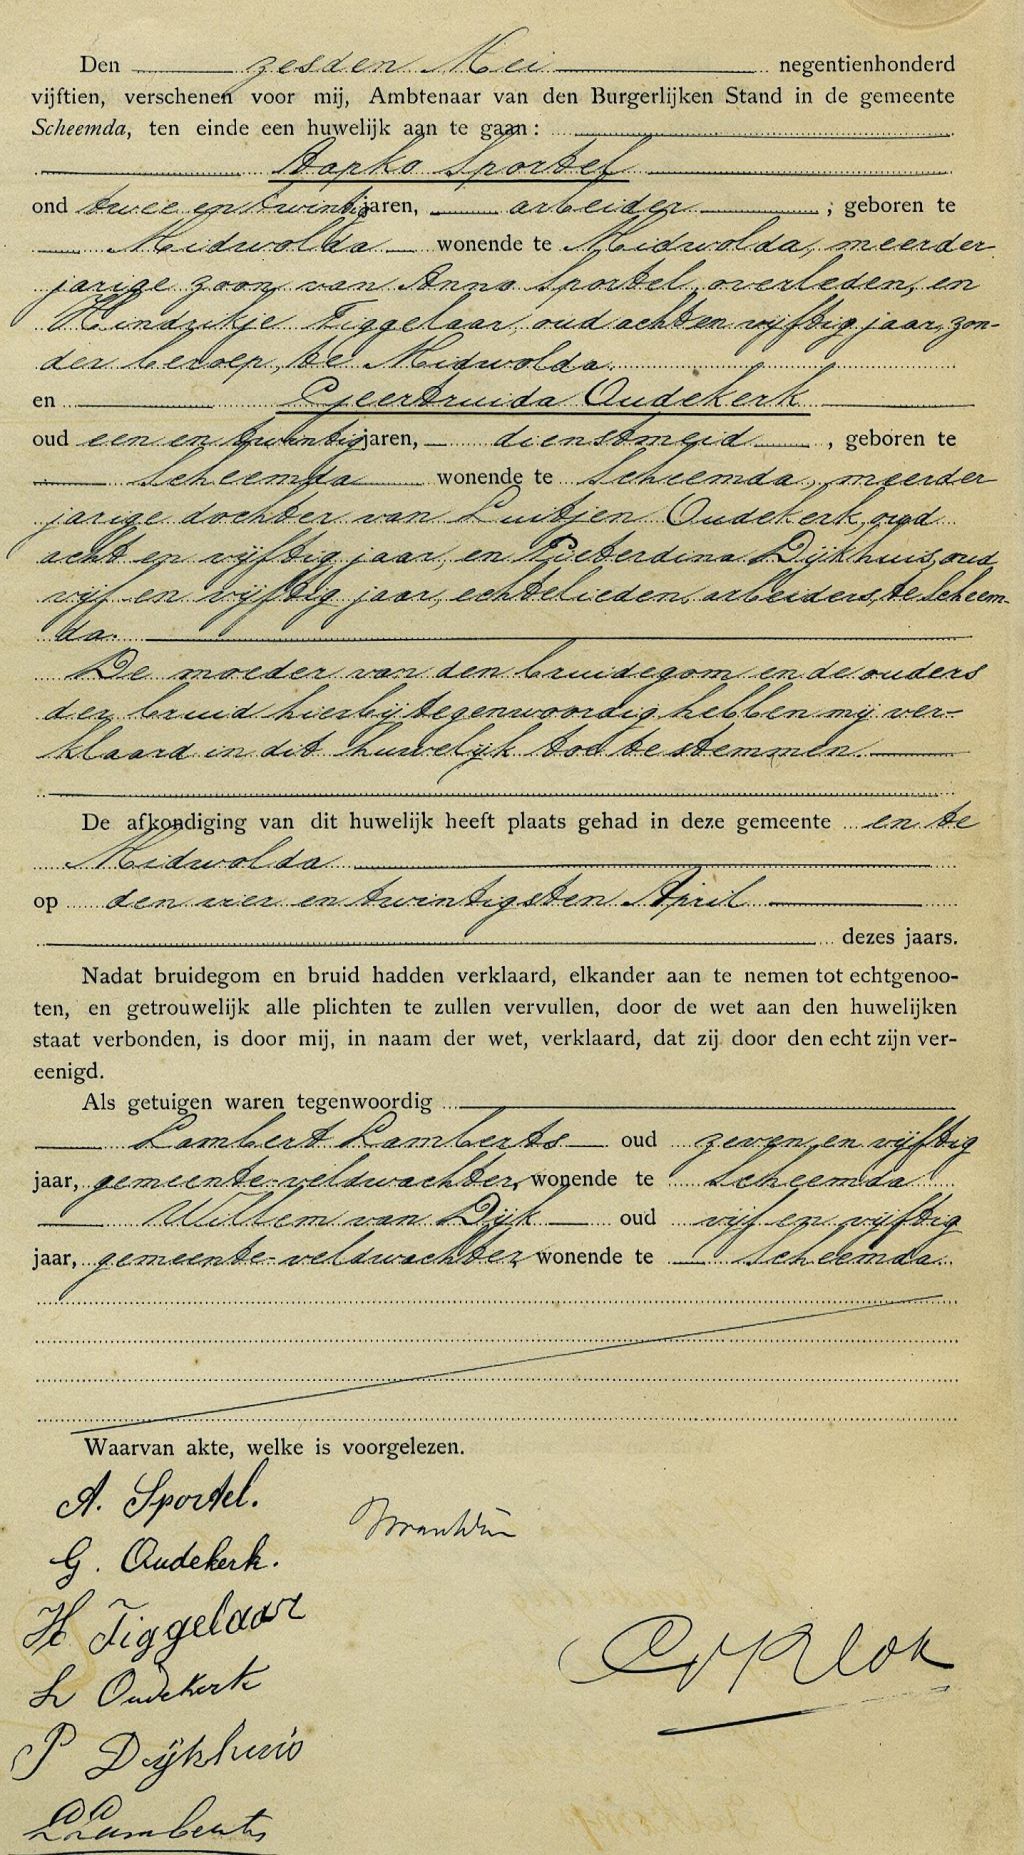 Den zesden Mei negentienhonderd
vijftien, verschenen voor mij, Ambtenaar van den Burgerlijken Stand in de gemeente
Scheemda, ten einde een huwelijk aan te gaan:
Aapko Sportel
oud twee en twintig jaren, arbeider, geboren te
Midwolda wonende te Midwolda, meerder-
jarige zoon van Anno Sportel, overleden, en
Hindrikje Tiggelaar, oud acht en vijftig jaar, zon-
der beroep, te Midwolda.
en Geertruida Oudekerk
oud een en twintig jaren, dienstmeid, geboren te
Scheemda wonende te Scheemda, meerder
jarige dochter van Luitjen Oudekerk, oud
acht en vijftig jaar, en Pieterdina Dijkhuis, oud
vijf en vijftig jaar, echtelieden, arbeiders, te Scheem-
da.
De moeder van den bruidegom en de ouders
der bruid hierbij tegenwoordig hebben mij ver-
klaard in dit huwelijk toe te stemmen.
De afkondiging van dit huwelijk heeft plaats gehad in deze gemeente en te
Midwolda
op den vier en twintigsten April
dezes jaars.
Nadat bruidegom en bruid hadden verklaard, elkander aan te nemen tot echtgenoo-
ten, en getrouwelijk alle plichten te zullen vervullen, door de wet aan den huwelijken
staat verbonden, is door mij, in naam der wet, verklaard, dat zij door den echt zijn ver-
eenigd.
Als getuigen waren tegenwoordig
Lambert Lamberts oud zeven en vijftig
jaar, gemeente-veldwachter, wonende te Scheemda
Willem van Dijk oud vijf en vijftig
jaar, gemeente-veldwachter, wonende te Scheemda.
Waarvan akte, welke is voorgelezen.
A. Sportel.
G. Oudekerk.
H Tiggelaar
L Oudekerk
P Dijkhuis
L Lamberts